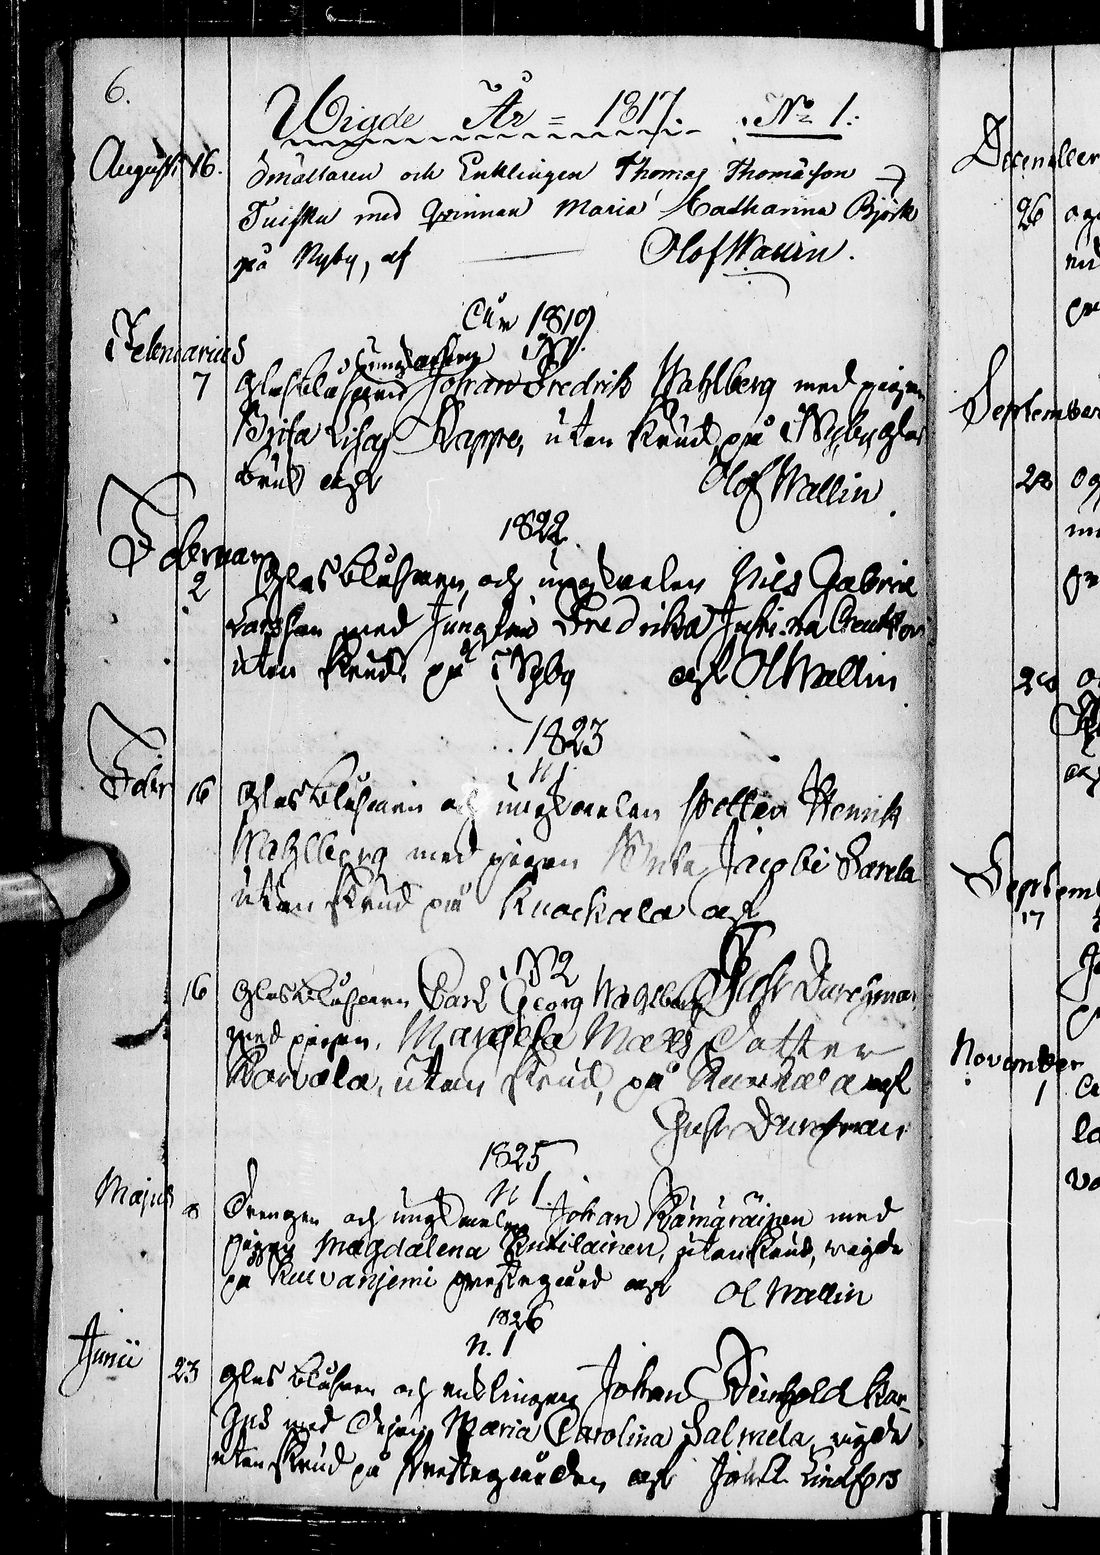 6.
Wigde År = 1817. No 1.
August 16. Smältaren och Enklingen Thomas Thomasson
Tuiska med Qvinnan Maria Catharina Björk
på Nyby, af Olof Wallin.
År 1819
N 1.
Februarius
7 Glasblåsaren Ungkarlen Johan Fredrik Wahlberg med pigan
Brita Lisa Kappe, utan Krud, på Nyby glas
bruk af Olof Wallin
1822
Februari
2 Glasblåsaren och ungkarlen Nils Gabriel
Larsson med Jungfru Fredrika Justina
utan Krud. på Nyby af Ol Wallin
1823
N 1
Febr 16 Glasblåsaren och ungkarlen Petter Henrik
Wahlberg med pigan Jacobi
utan Krud på af
N 2
16 Glasblåsaren Carl Georg Wahlberg
med pigan, Margeta Mats Dotter
Karvala, utan Krud, på af
1825
N 1.
Majus 8 Drengen och ungkarlen Johan Kämäräinen med
pigan Magdalena Kukilainen, utan Krud, vigde
på Kuivanjemi prestegård af Ol Wallin
1826
N. 1
Junii 23 Glasblåsaren och enklingen Johan Reinhold
med Maria Carolina Salmela, vigde
utan Krud på Prestegården af Joh Lindfors
December
26
September
28
28
Septemb
17
November
1